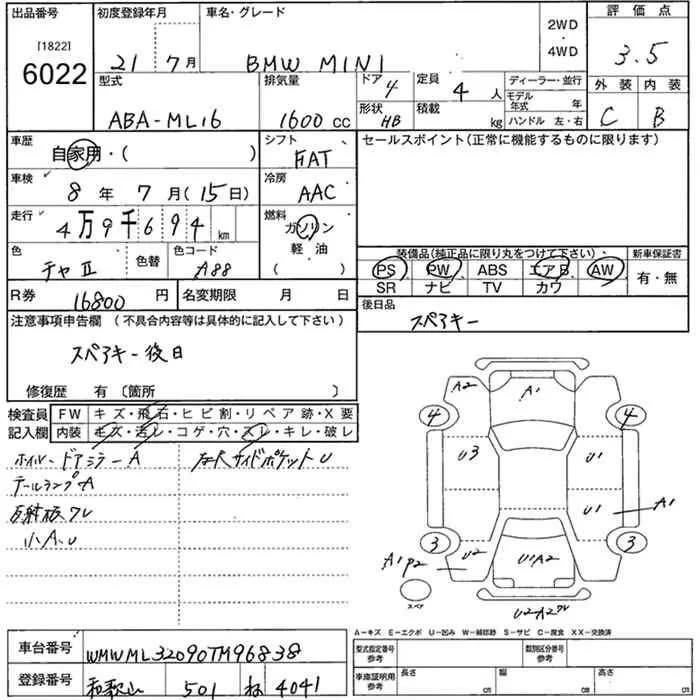 出品番号
[1822]
6022
初度登録年月
21 7月
車名・グレード
BMW MINI
2WD
・
4WD
評価点
3.5
外装 内装
C B
型式
ABA-ML16
排気量
1600 cc
ドア 4
形状 HB
定員 4 人
積載 kg
ディーラー・並行
モデル年式 年
ハンドル 左・右
車歴 自家用・( )
シフト
FAT
セールスポイント(正常に機能するものに限ります)
車検 8 年 7 月(15日)
冷房
AAC
走行 4万9千694 km
燃料
ガソリン
軽・油
( )
色
チャⅡ
色替
色コード
A88
装備品(純正品に限り丸をつけて下さい)
新車保証書
PS PW ABS エアB AW
SR ナビ TV カワ
有・無
R券 16800 円
名変期限 月 日
後日品
スペアキー
注意事項申告欄 (不具合内容等は具体的に記入して下さい)
スペアキー後日
修復歴 有〔箇所 〕
検査員記入欄
FW キズ・飛石・ヒビ割・リペア跡・X要
内装 キズ・汚レ・コゲ・穴・スレ・キレ・破レ
ホイル・ドアミラーA
テールランプA
反射板ワレ
小A.U
サイドポケットU
A2 A1
4 4
U3 U1
U1 A1
3 3
A1P2 U2 U1A2
スペア
U2A2ワレ
A-キズ E-エクボ U-凹み W-補修跡 S-サビ C-腐食 XX-交換済
車台番号 WMWML32090TM96838
登録番号 和歌山 501 ね 4041
型式指定番号
参考
類別区分番号
参考
車庫証明用
参考
長さ cm
幅 cm
高さ cm